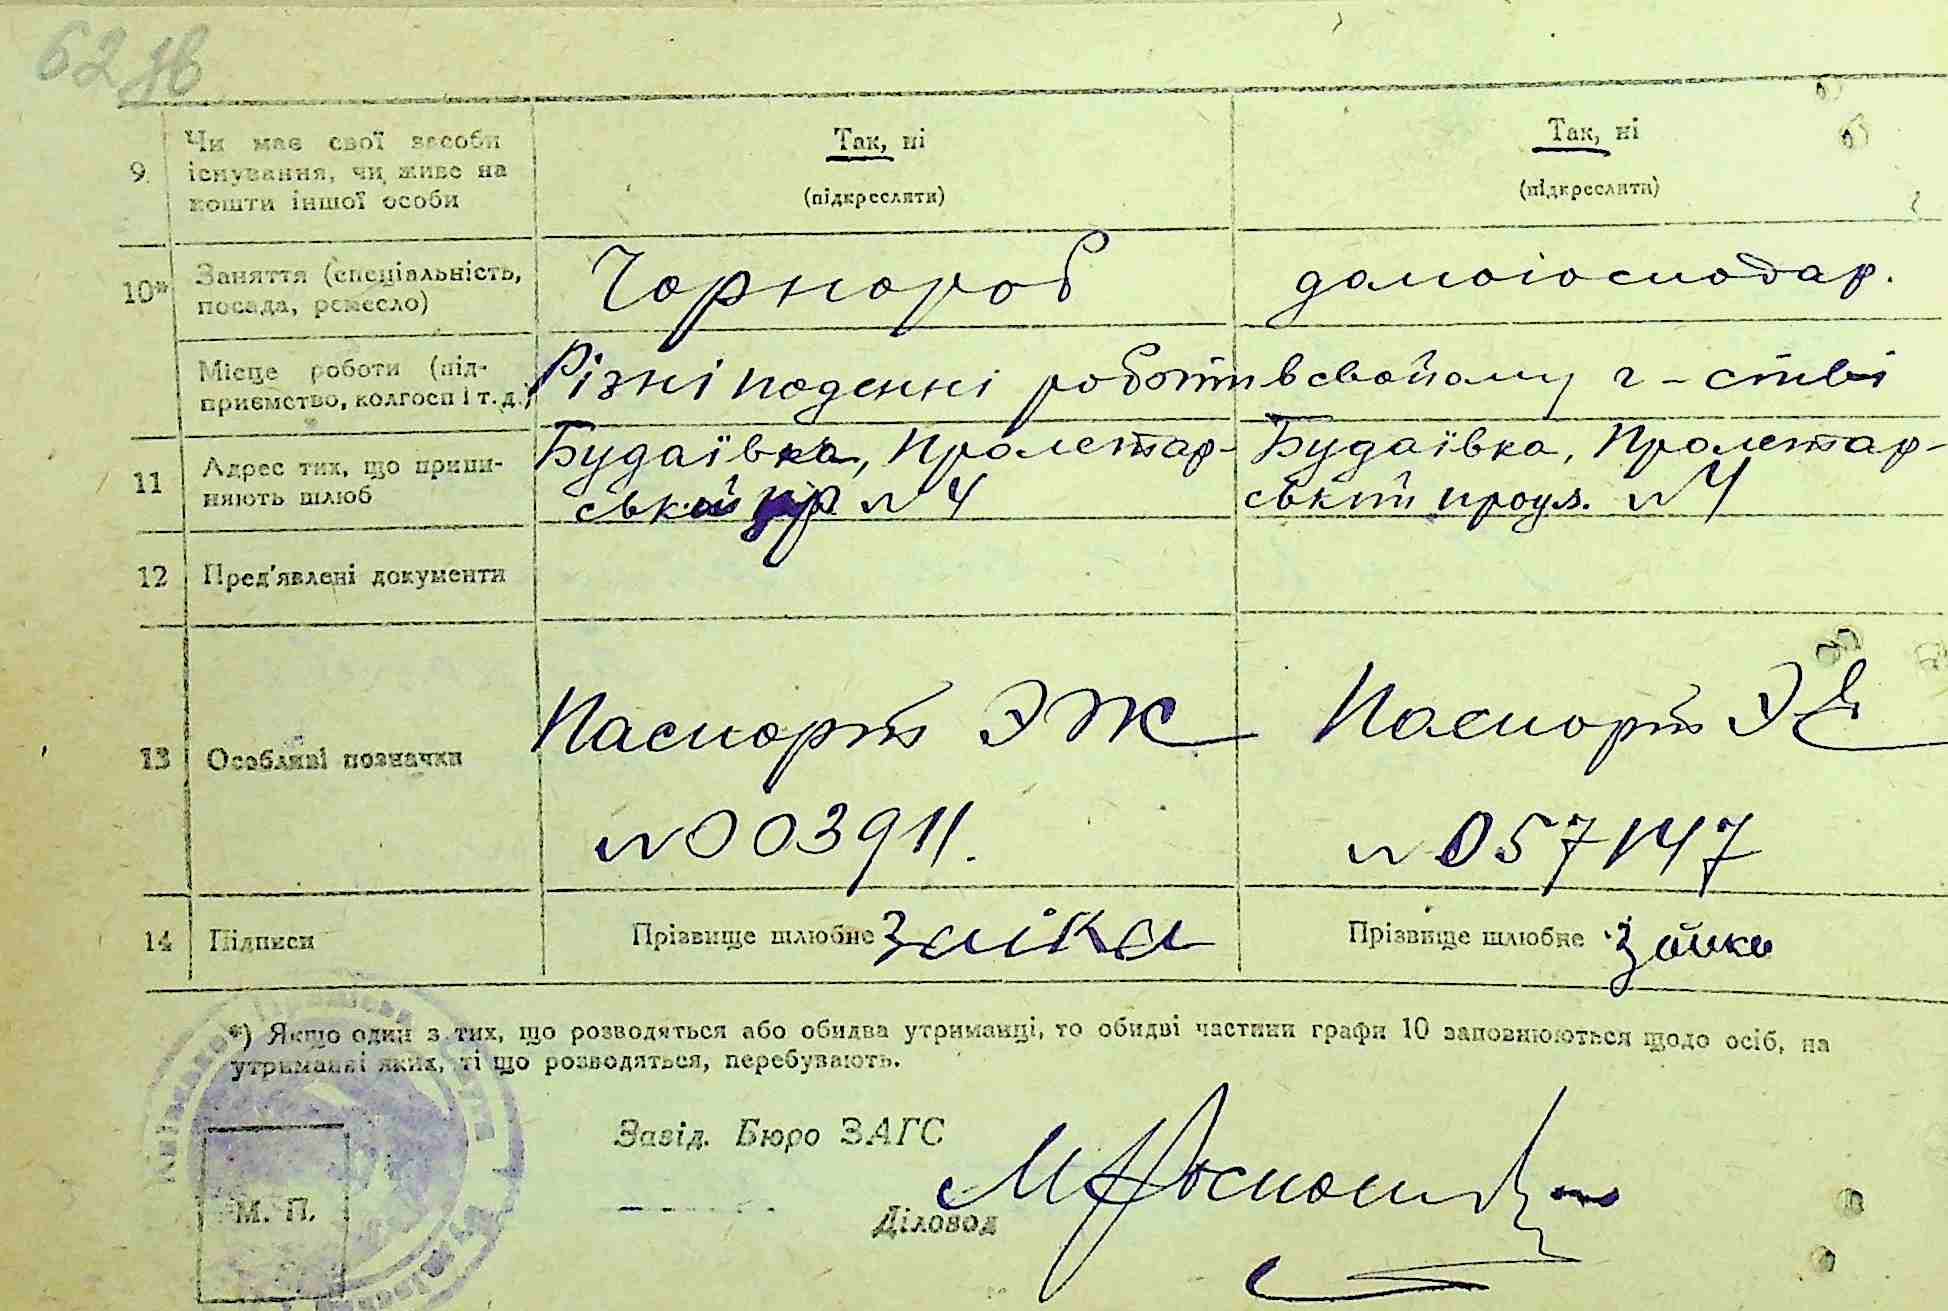 62 зв
9. Чи має свої засоби існування, чи живе на кошти іншої особи
Так, ні
(підкреслити)
Так, ні
(підкреслити)
10* Заняття (спеціальність, посада, ремесло)
Чорнороб
домогосподар.
Місце роботи (підприємство, колгосп і т. д.)
Різні поденні роботи
в свойому г-стві
11 Адрес тих, що припиняють шлюб
Будаївка, Пролетар-
ський пр № 4
Будаївка, Пролетар-
ський проул. № 4
12 Пред'явлені документи
13 Особливі позначки
Паспорт ЭЖ
№ 003911.
Паспорт ЭЕ
№ 057147
14 Підписи
Прізвище шлюбне Заіка
Прізвище шлюбне Зайка
*) Якщо один з тих, що розводяться або обидва утриманці, то обидві частини графи 10 заповнюються щодо осіб, на
утриманні яких, ті що розводяться, перебувають.
Завід. Бюро ЗАГС
Діловод
М. П.